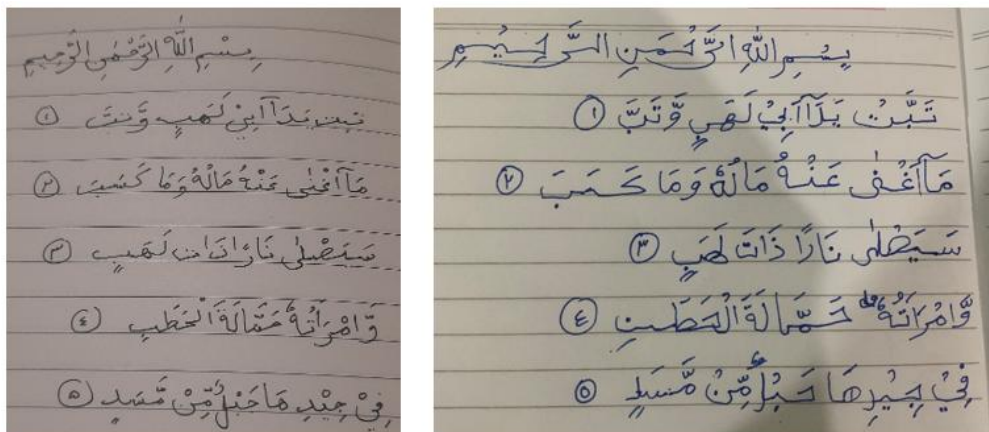 بِسْمِ اللّٰهِ الرَّحْمٰنِ الرَّحِيْمِ
تَبَّتْ يَدَآ اَبِيْ لَهَبٍ وَّتَبَّ ①
مَآ اَغْنٰى عَنْهُ مَالُهٗ وَمَا كَسَبَ ②
سَيَصْلٰى نَارًا ذَاتَ لَهَبٍ ③
وَّامْرَاَتُهٗ حَمَّالَةَ الْحَطَبِ ④
فِيْ جِيْدِهَا حَبْلٌ مِّنْ مَّسَدٍ ⑤
بِسْمِ اللّٰهِ الرَّحْمٰنِ الرَّحِيْمِ
تَبَّتْ يَدَآ اَبِيْ لَهَبٍ وَّتَبَّ ①
مَآ اَغْنٰى عَنْهُ مَالُهٗ وَمَا كَسَبَ ②
سَيَصْلٰى نَارًا ذَاتَ لَهَبٍ ③
وَّامْرَاَتُهٗ ؕ حَمَّالَةَ الْحَطَبِ ④
فِيْ جِيْدِهَا حَبْلٌ مِّنْ مَّسَدٍ ⑤